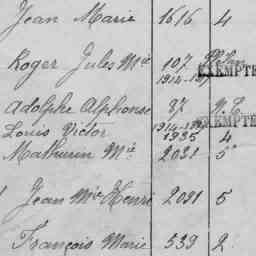 Jean Marie 1616 4
Roger Jules Mie 107
1914-
EXEMPTÉ
Adolphe Alphonse 37 N.C.
1914-
EXEMPTÉ
Louis Victor 1935 4
Mathurin Mie 2031 5
Jean Mie Henri 2091 5
François Marie 539 2